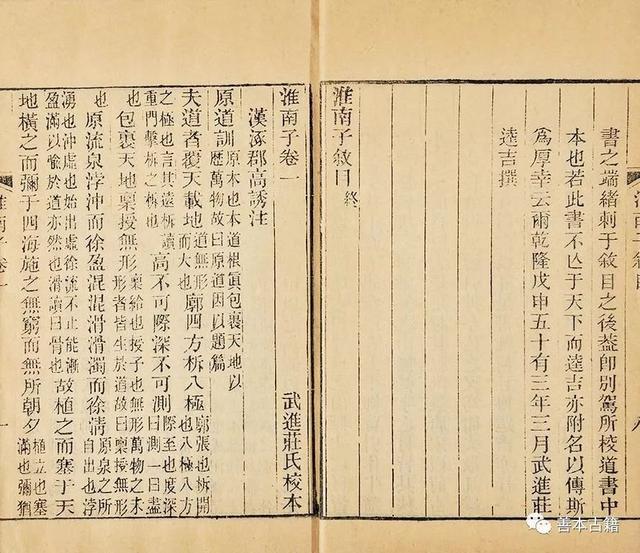 書之端緒刺于敘目之後葢卽別駕所校道書中
本也若此書不亾于天下而逵吉亦附名以傳斯
爲厚幸云爾乾隆戊申五十有三年三月武進莊
逵吉撰
淮南子敘目終
淮南子敘目
八
淮南子卷一
漢涿郡高誘注
武進莊氏校本
原道訓原本也本道根眞包裹天地以
歷萬物故曰原道因以題篇
夫道者覆天載地道無形
而大也廓四方柝八極廓張也柝開
也八極八方
之極也言其遠柝讀
重門擊柝之柝也高不可際深不可測際至也度深
曰測一曰盡
也包裹天地稟授無形稟給也授予也無形萬物之未
形者皆生於道故曰稟授無形
也原流泉浡沖而徐盈混混滑滑濁而徐淸原泉之所
自出也浡
湧也沖虛也始出虛徐流不止能漸
盈滿以喻於道亦然也滑讀曰骨也故植之而塞于天
地橫之而彌于四海施之無窮而無所朝夕植立也塞
滿也彌猶
淮南子卷一
一
善本古籍